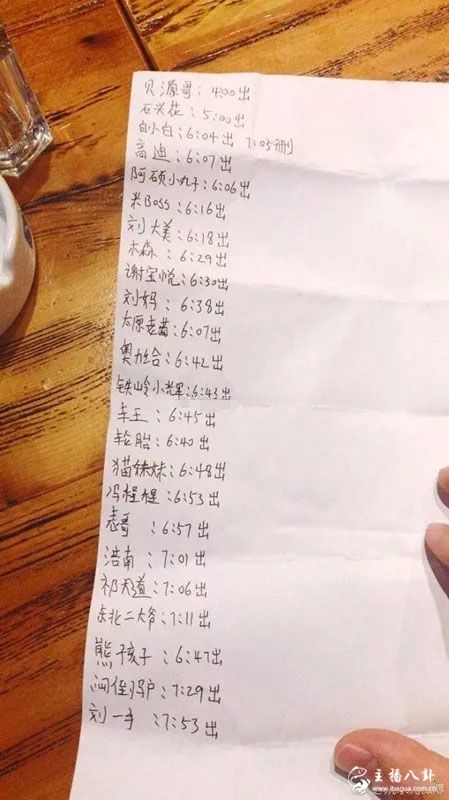 贝源哥：4:00出
石头花：5:00出
白小白：6:04出 7:03删
高迪：6:07出
阿硕小丸子：6:06出
米Boss：6:16出
刘大美：6:18出
木森：6:29出
谢宝悦：6:30出
刘妈：6:38出
太原老苗：6:07出
奥力给：6:42出
铁岭小光军：6:43出
车王：6:45出
轮胎：6:40出
猫妹妹：6:48出
冯程程：6:53出
志哥：6:57出
浩南：7:01出
祁天道：7:06出
东北二大爷：7:11出
熊孩子：6:47出
：7:29出
刘一手：7:53出
主播八卦
www.ibagua.com.cn